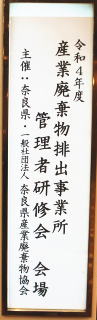 令和4年度
産業廃棄物排出事業所
管理者研修会 会場
主催:奈良県・一般社団法人 奈良県産業廃棄物協会